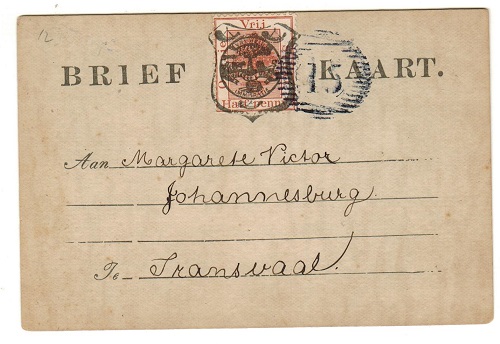 12
Vrij
BRIEF KAART.
15
Half penny
Aan Margarete Victor
Johannesburg
Te Transvaal.